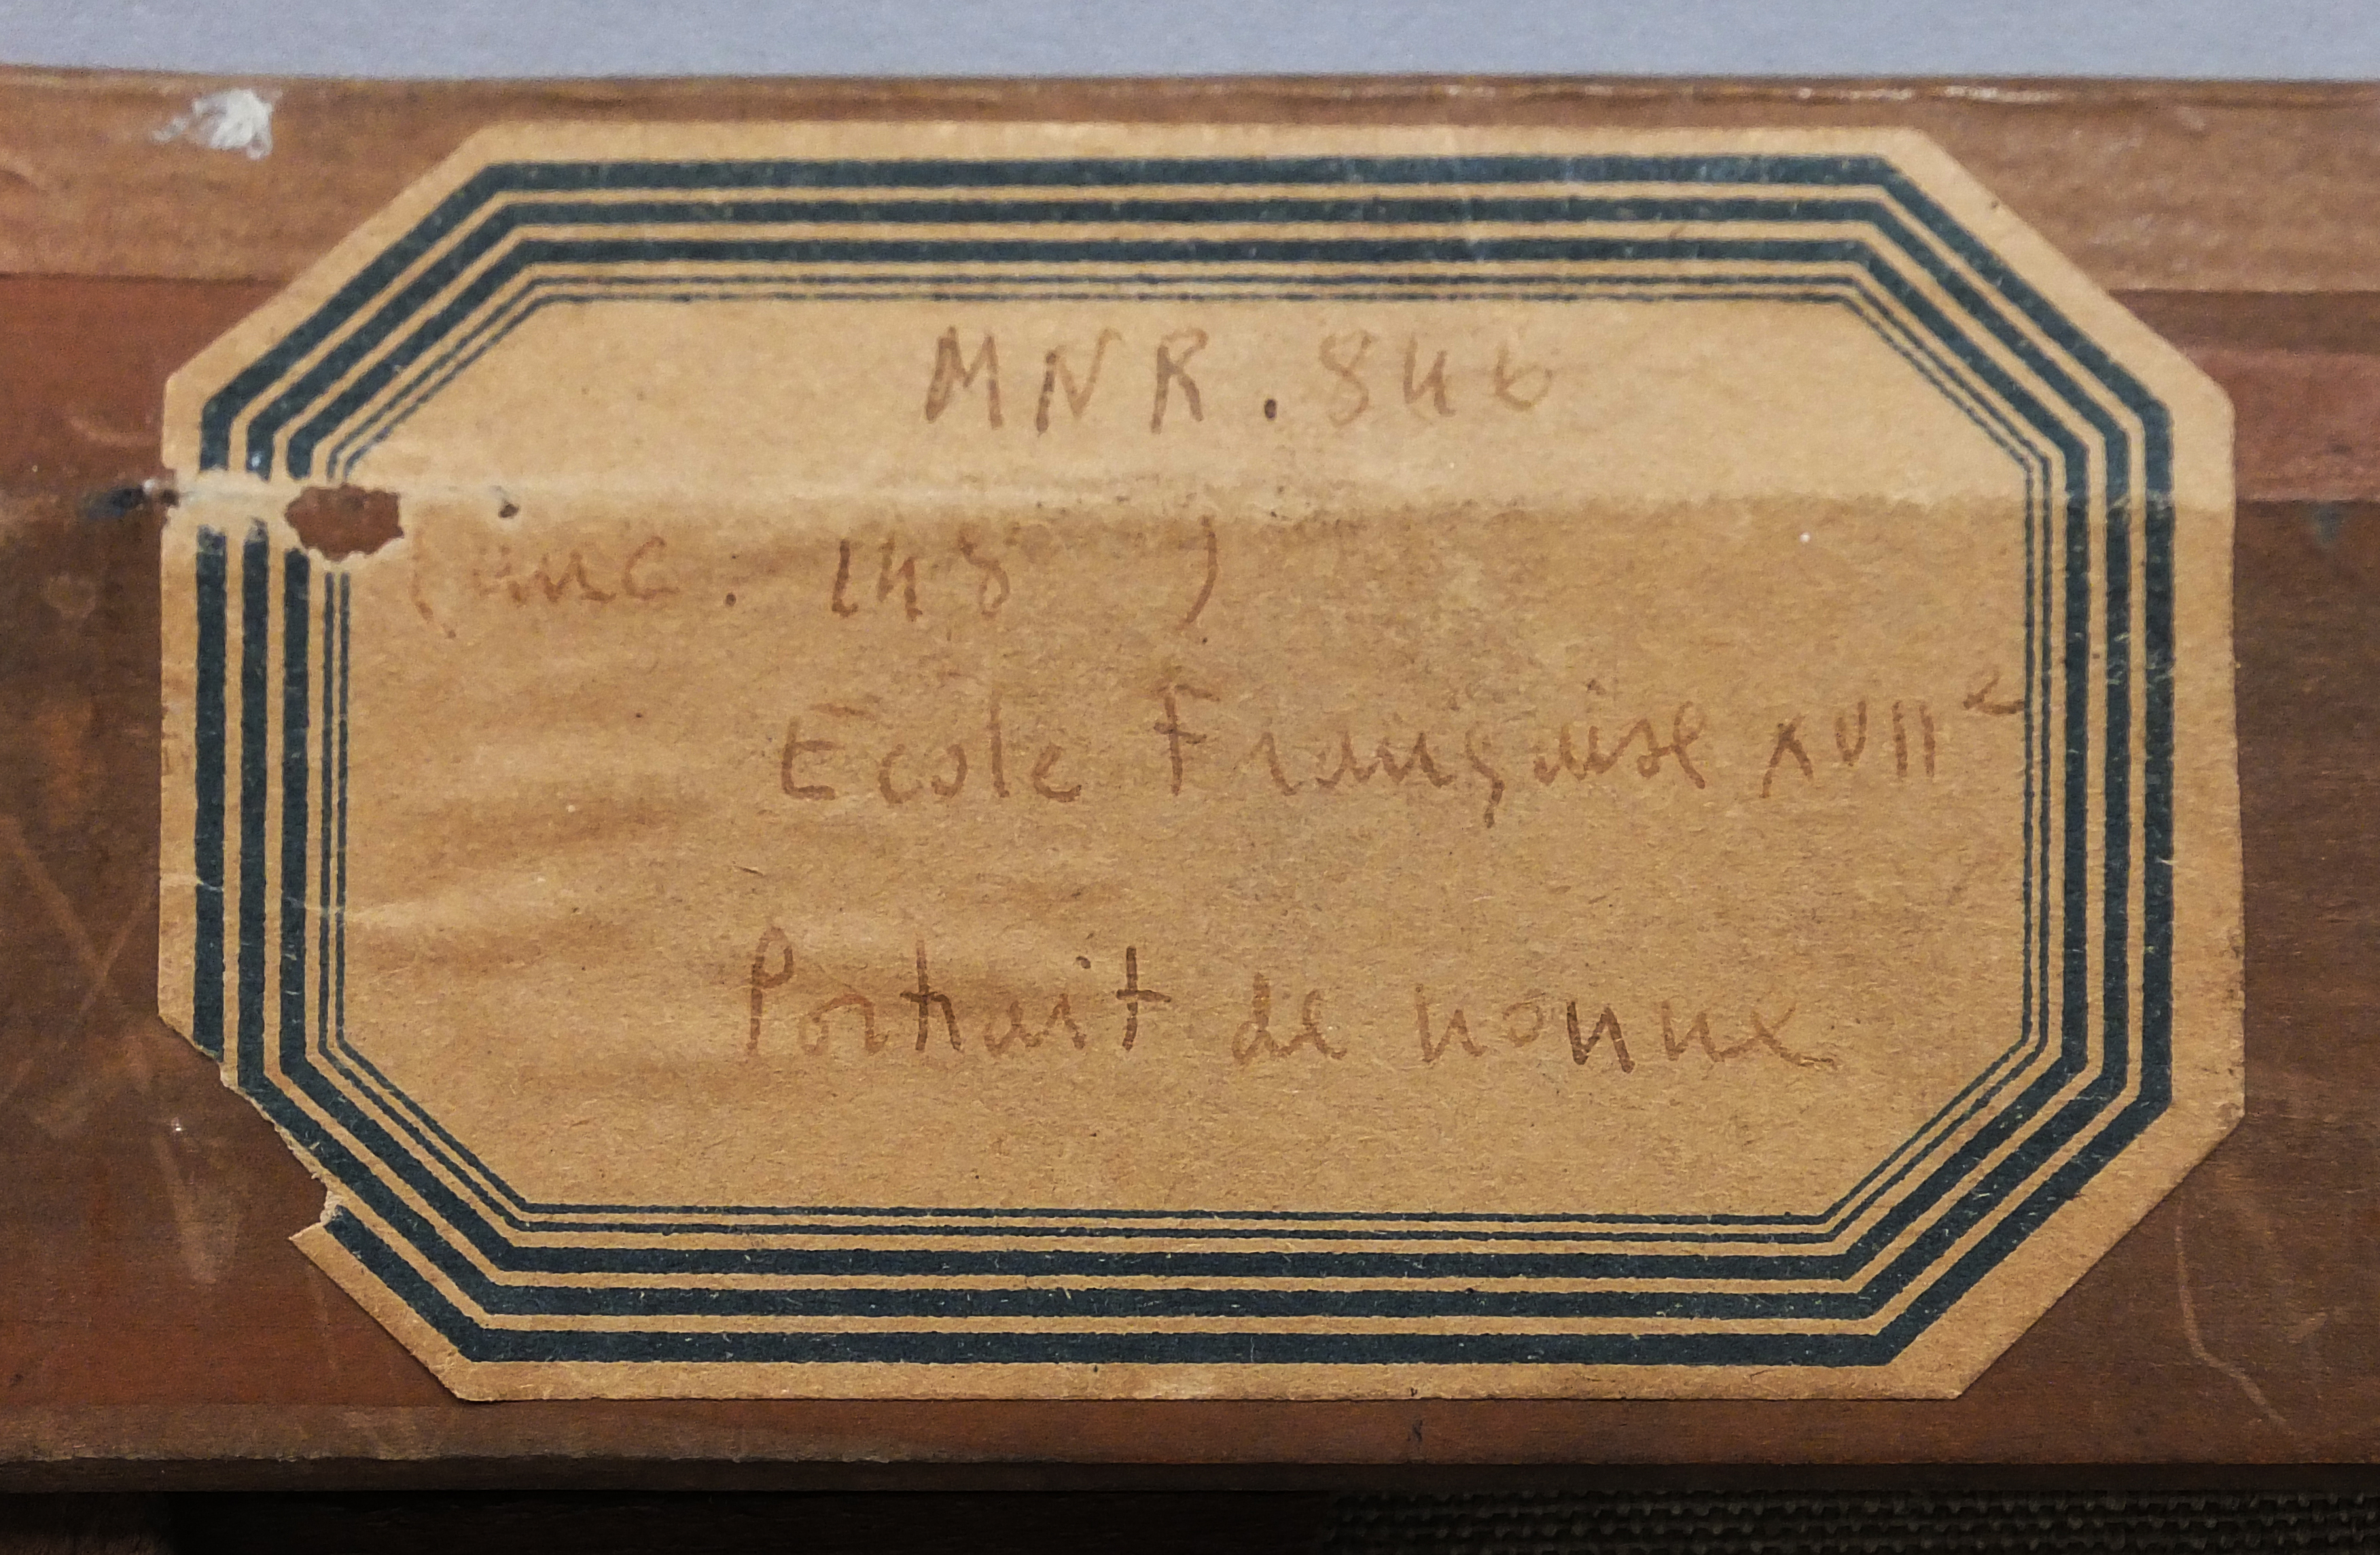 MNR. 846
(anc. 148 )
Ecole Française XVIIe
Portrait de nonne